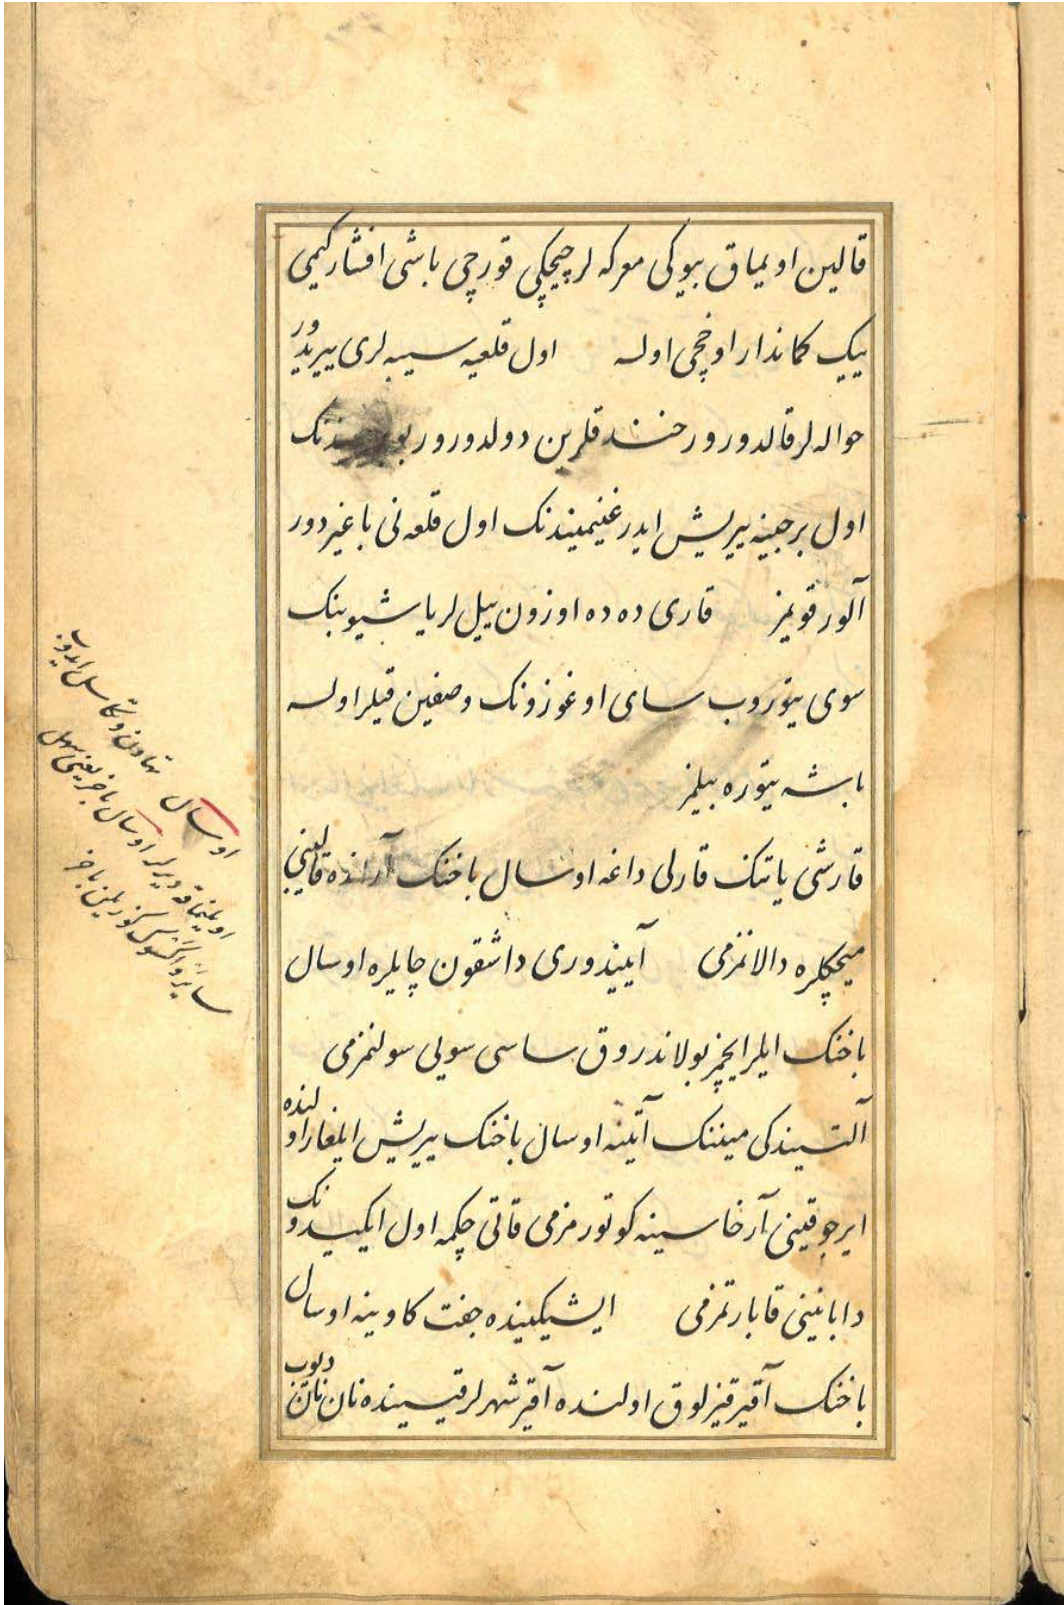 قالین اویماق بیوکی معرکه لر چیچکی قورچی باشی افشار کیمی
ییک کماندار اوخچی اولسه اول قلعیه سیبه لری ییریدور
حواله لر قالدورور خندقلرین دولدورور
اول برجینه ییریش ایدر غنیمیندنک اول قلعه نی باغیر دور
آلور قویمز قاری ده ده اوزون ییل لر یاشیوبنک
سوی ییتوروب سای اوغوزونک وصفین قیلر اولسه
باشه ییتوره بیلمز
قارشی یاتنک قارلی داغه اوسال باخنک آرانده قالینی
میچکلره دالانمزمی آییندوری داشقون چایلره اوسال
باخنک ایلر ایچمز بولاندروق ساسی سویی سولنمزمی
آلتیندکی میننک آتینه اوسال باخنک ییریش ایلغار اولنده
ایرجوقینی آرخاسینه کوتورمزمی قاتی چکمه اول ایکیدونک
دابانینی قابارتمزمی ایشیکینده جفت کاوینه اوسال
باخنک آقیر قیزلوق اولنده آقیر شهر لر قیسینده نان
اوسال تهاون و تکاسل ایدوب
اویلنماقه دیرلر اوسال باخر یعنی سهل
باخر